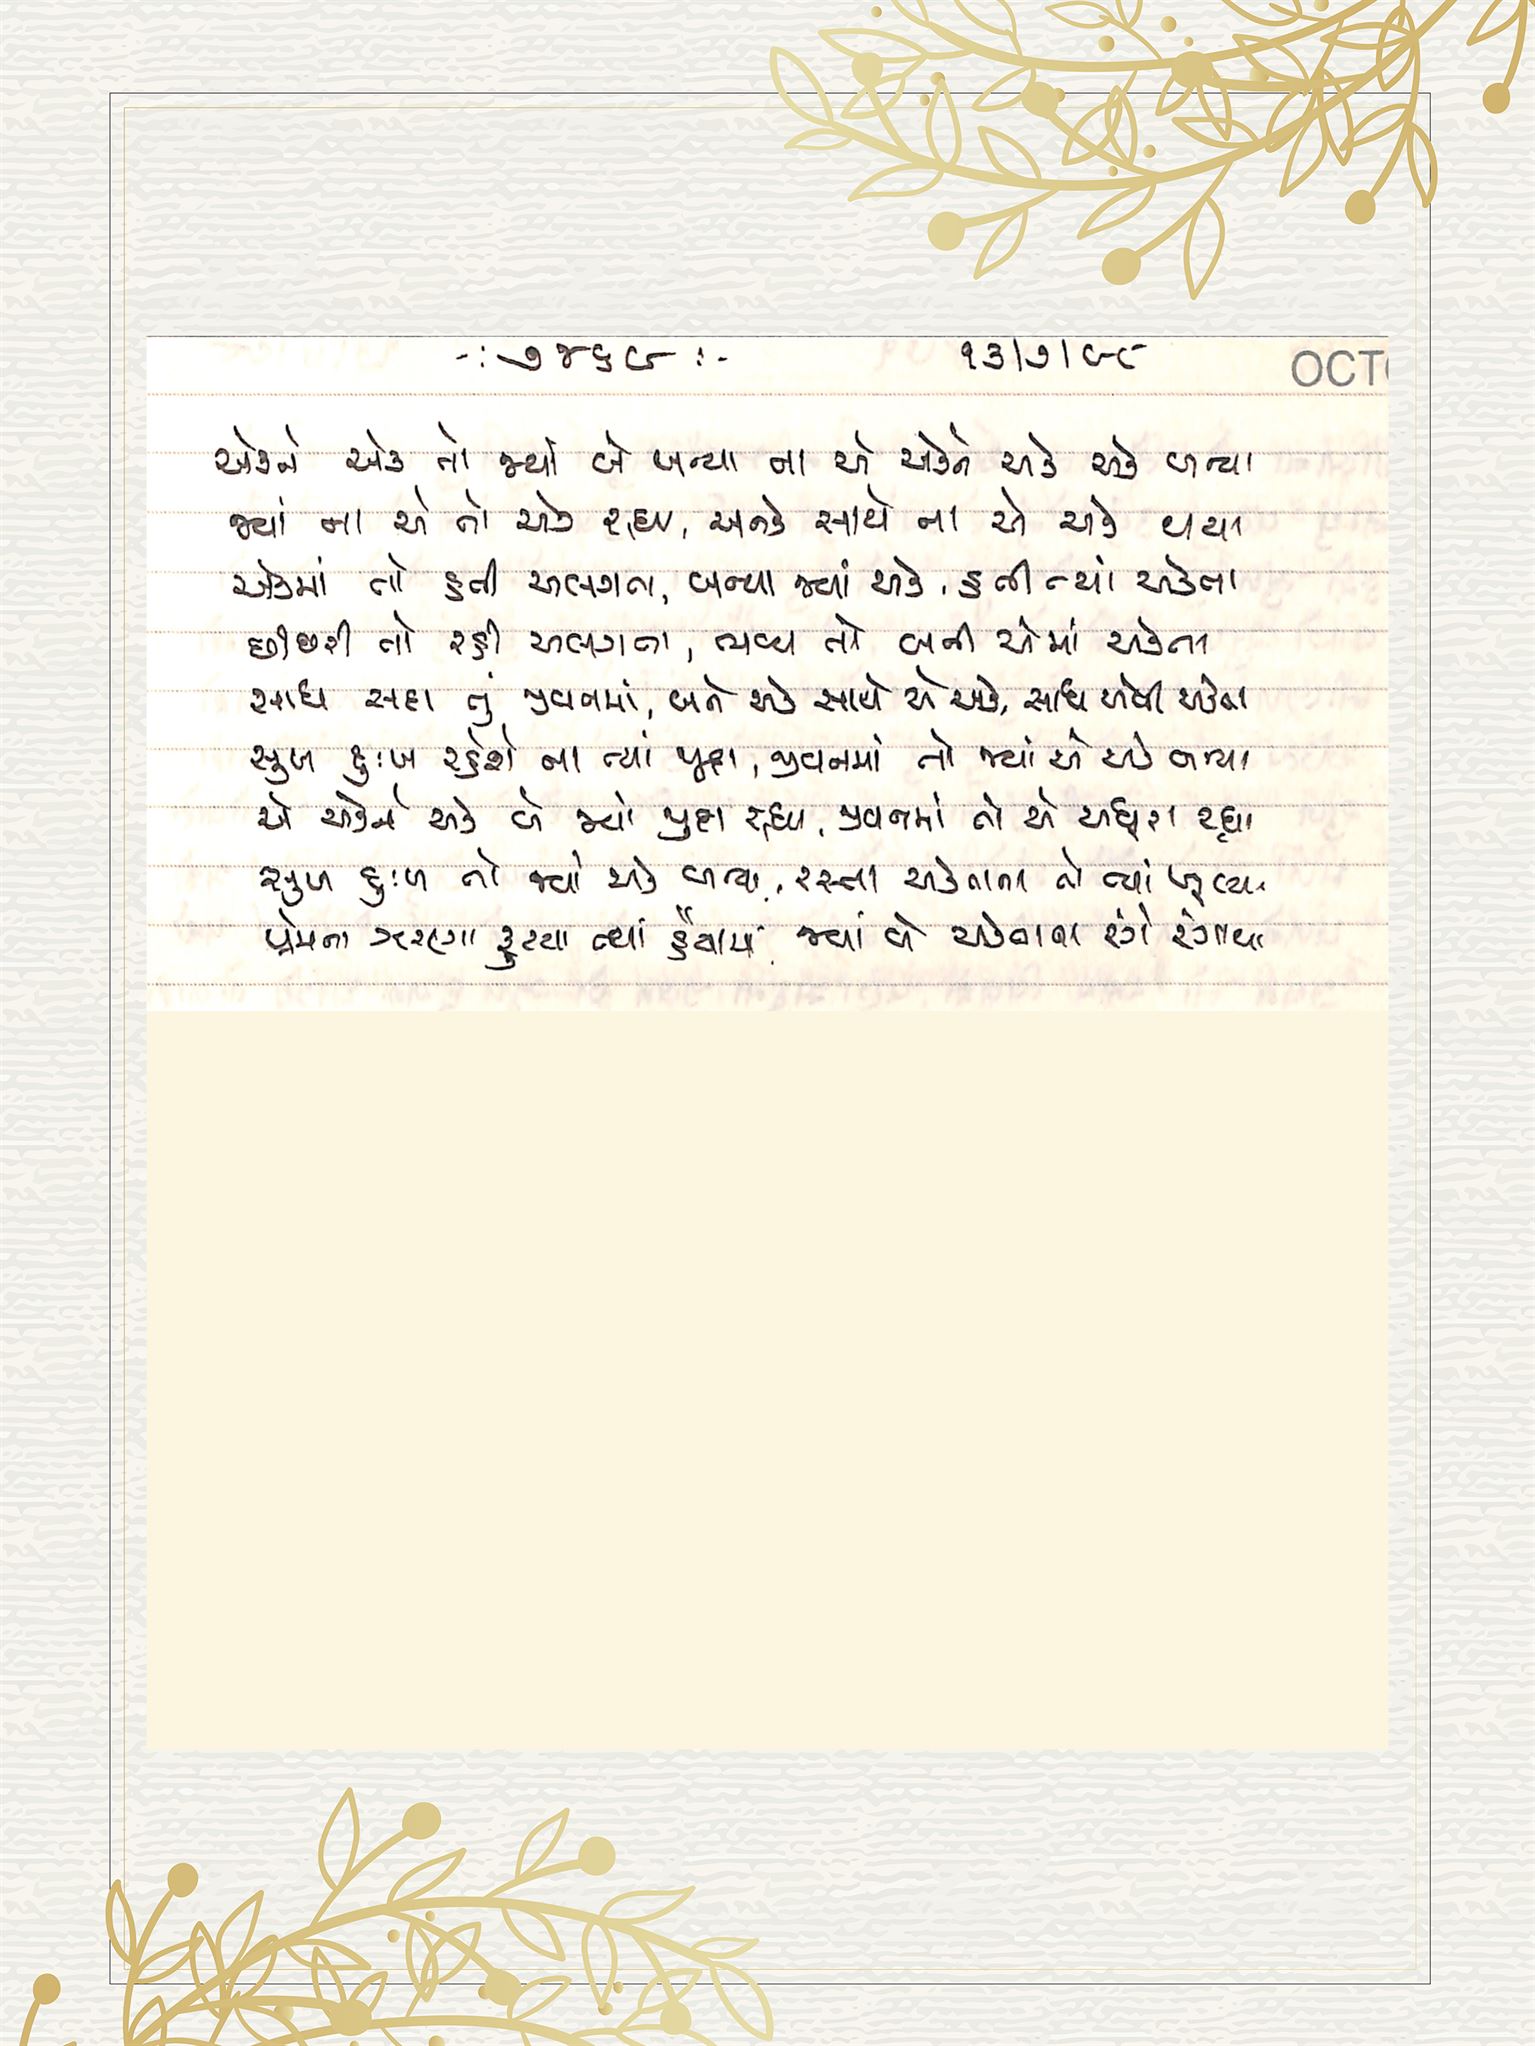 -: ૭૪૬૯ :- ૧૩/૭/૯૮ OCT
એકને એક તો જ્યાં બે બન્યા ના એ એકને એક એક બન્યા
જ્યાં ના એ તો એક રહ્યા, અનેક સાથે ના એ એક થયા
એકમાં તો હતી અલગતા, બન્યા જ્યાં એક, હતી ત્યાં એકતા
રહી અલગતા, તો બની એમાં એકતા
સાધ સદા તું જીવનમાં, બને એક સાથે એ એક, સાધ એવી એકતા
સુખ દુઃખ રહેશે ના ત્યાં જુદા, જીવનમાં તો જ્યાં એ એક બન્યા
એ એકને એક બે જ્યાં જુદા રહ્યા, જીવનમાં તો એ અધૂરા રહ્યા
સુખ દુઃખ તો જ્યાં એક બન્યા, રસ્તા એકતાના તો ત્યાં ખૂલ્યા
પ્રેમના ઝરણા ફુટયા ત્યાં હૈયામાં જ્યાં બે એકતાના રંગે રંગાયા